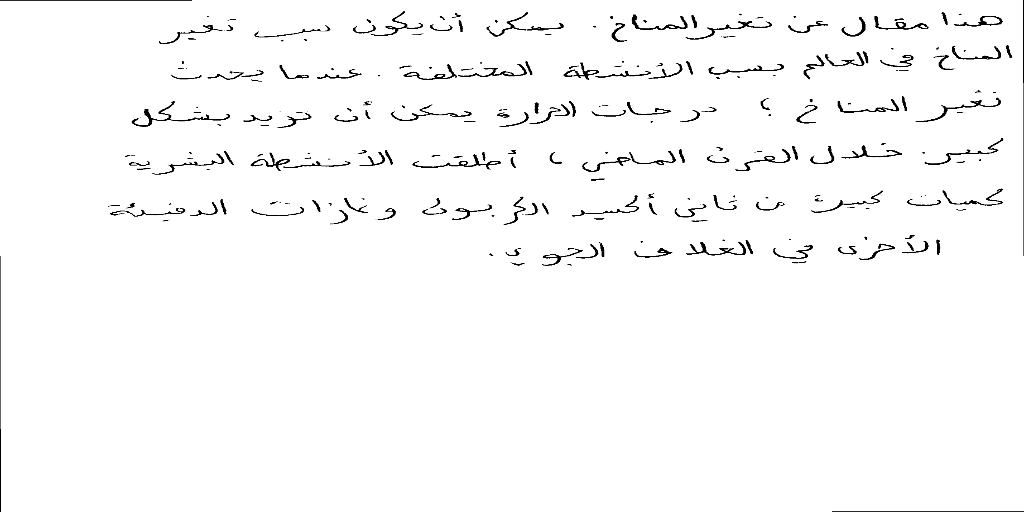 هذا مقال عن تغير المناخ. يمكن أن يكون سبب تغير
المناخ في العالم بسبب الأنشطة المختلفة. عندما يحدث
تغير المناخ ؛ درجات الحرارة يمكن أن تزيد بشكل
كبير. خلال القرن الماضي، أطلقت الأنشطة البشرية
كميات كبيرة من ثاني أكسيد الكربون وغازات الدفيئة
الأخرى في الغلاف الجوي.